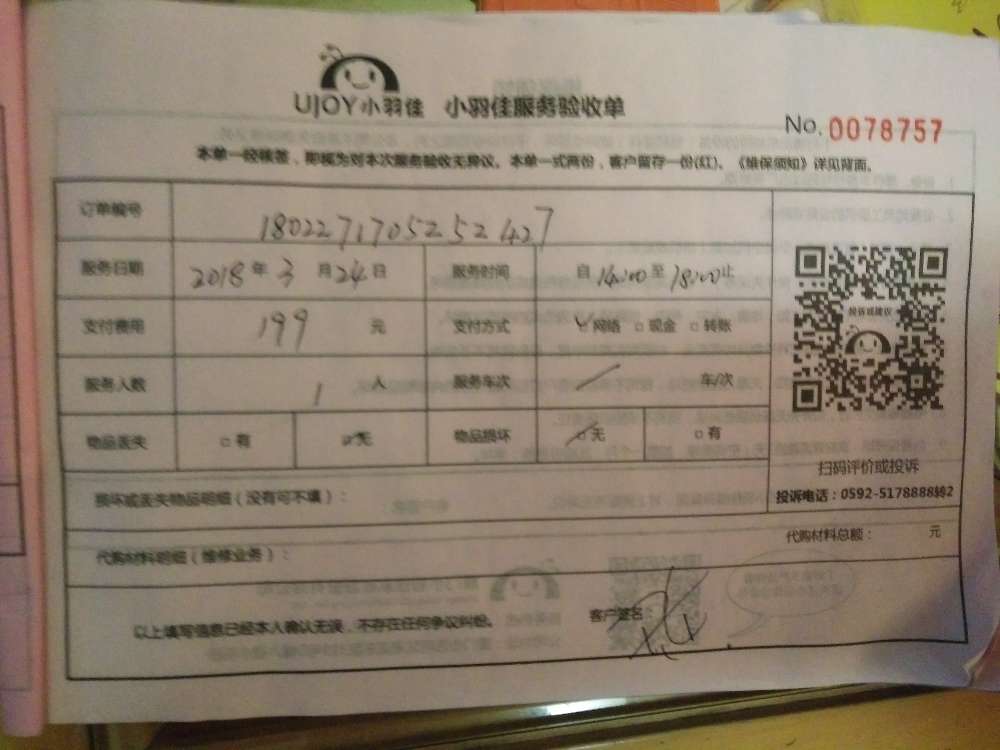 UJOY小羽佳 小羽佳服务验收单
No. 0078757
本单一经核签，即视为对本次服务验收无异议。本单一式两份，客户留存一份(红)。《维保须知》详见背面。
订单编号 1802271705252427
服务日期 2018年3月24日 服务时间 自14:00至18:00止
支付费用 199 元 支付方式 网络 □现金 □转账
投诉或建议
服务人数 1 人 服务车次 / 车/次
物品丢失 □有 ☑无 物品损坏 ☑无 □有
扫码评价或投诉
损坏或丢失物品明细（没有可不填）：
投诉电话：0592-5178888转2
代购材料明细（维修业务）：
代购材料总额： 元
以上填写信息已经本人确认无误，不存在任何争议纠纷。 客户签名：